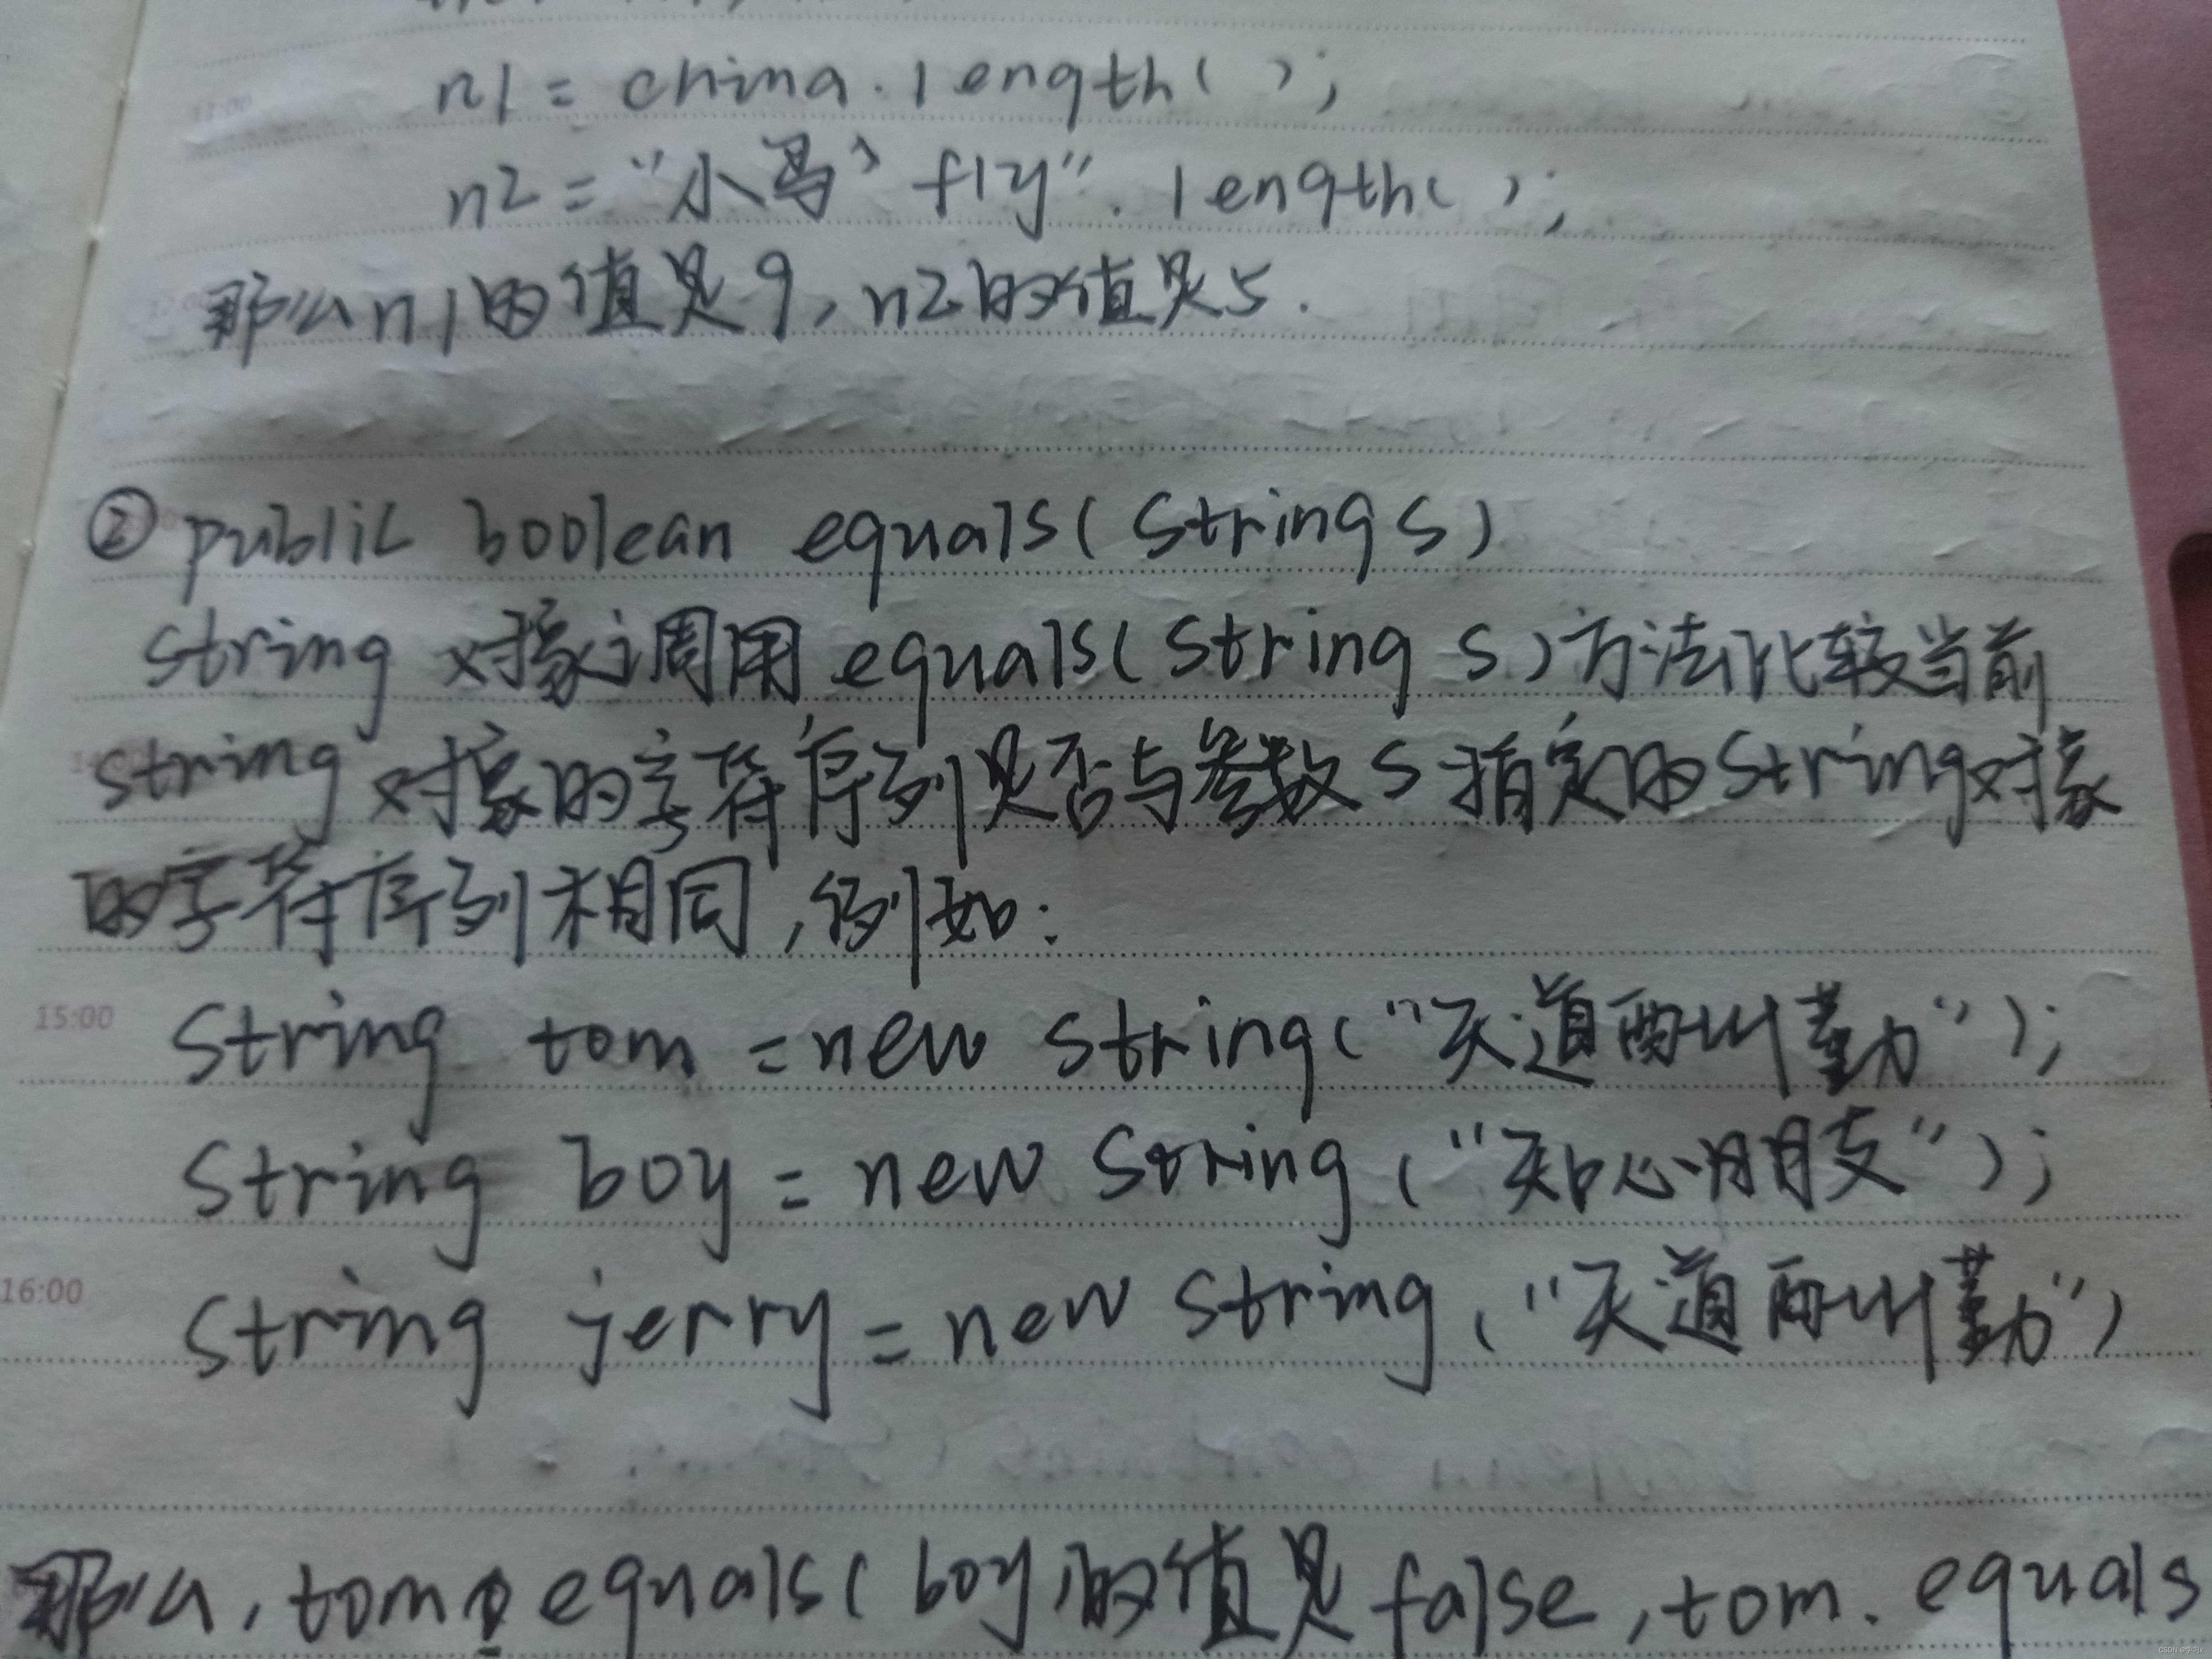 n1 = china.length( );
n2 = "小鸟 fly".length( );
那么n1的值是9,n2的值是5.
② public boolean equals(String s)
String 对象调用 equals(String s)方法比较当前
String 对象的字符序列是否与参数 s 指定的String对象
的字符序列相同,例如:
15:00
String tom = new String("天道酬勤");
String boy = new String ("知心朋友");
16:00
String jerry = new String ("天道酬勤")
那么, tom. equals(boy)的值是false, tom. equals